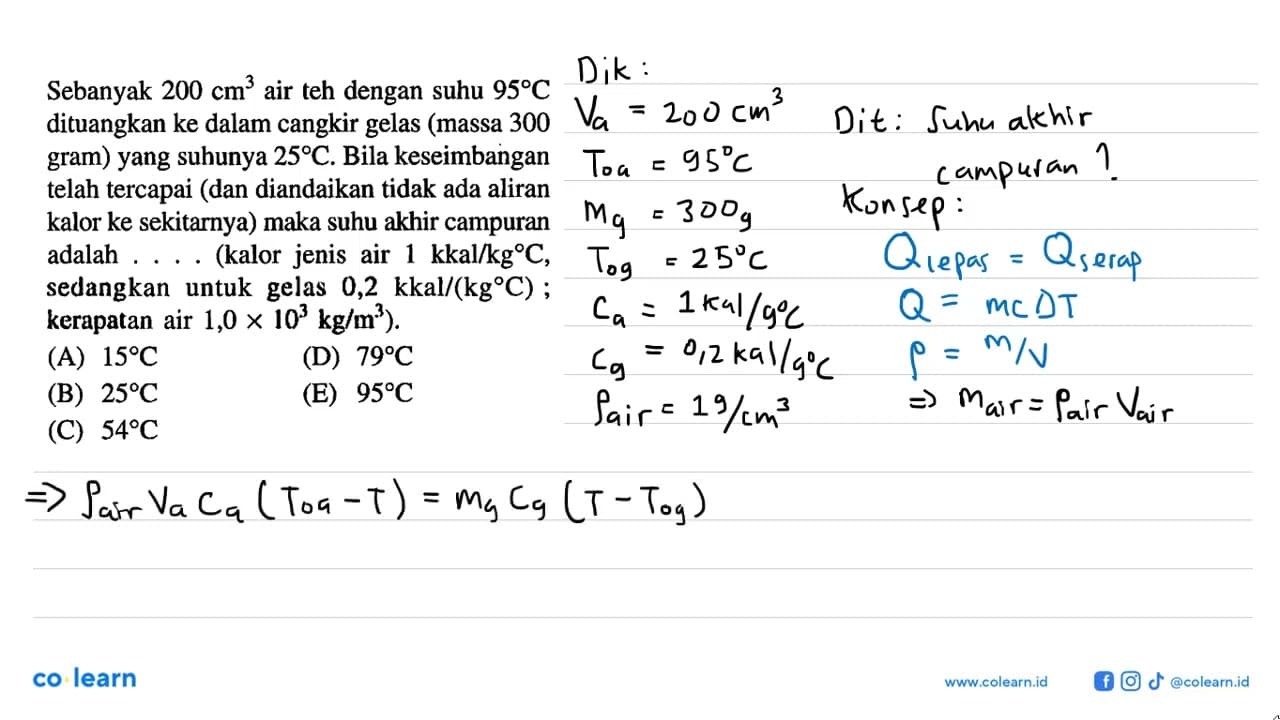 Sebanyak 200 cm³ air teh dengan suhu 95°C
dituangkan ke dalam cangkir gelas (massa 300
gram) yang suhunya 25°C. Bila keseimbangan
telah tercapai (dan diandaikan tidak ada aliran
kalor ke sekitarnya) maka suhu akhir campuran
adalah . . . . (kalor jenis air 1 kkal/kg°C,
sedangkan untuk gelas 0,2 kkal/(kg°C) ;
kerapatan air 1,0 × 10³ kg/m³).
(A) 15°C (D) 79°C
(B) 25°C (E) 95°C
(C) 54°C
Dik :
Va = 200 cm³
Toa = 95°C
Mg = 300g
Tog = 25°C
Ca = 1 kal/g°C
Cg = 0,2 kal/g°C
ρair = 1g/cm³
Dit : Suhu akhir
campuran ?
Konsep :
Qlepas = Qserap
Q = mcΔT
ρ = m/V
=> mair = ρair Vair
=> ρair Va Ca (Toa - T) = mg Cg (T - Tog)
co·learn
www.colearn.id
@colearn.id